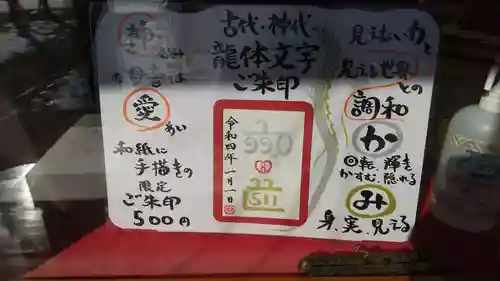 古代・神代の
龍体文字
ご朱印
見えないわと
見える世界
との
調和
か
◎転、輝き
かすむ、隠れる
み
身、実、見える
令和四年一月一日
愛
あい
和紙に
手描きの
限定
ご朱印
500円